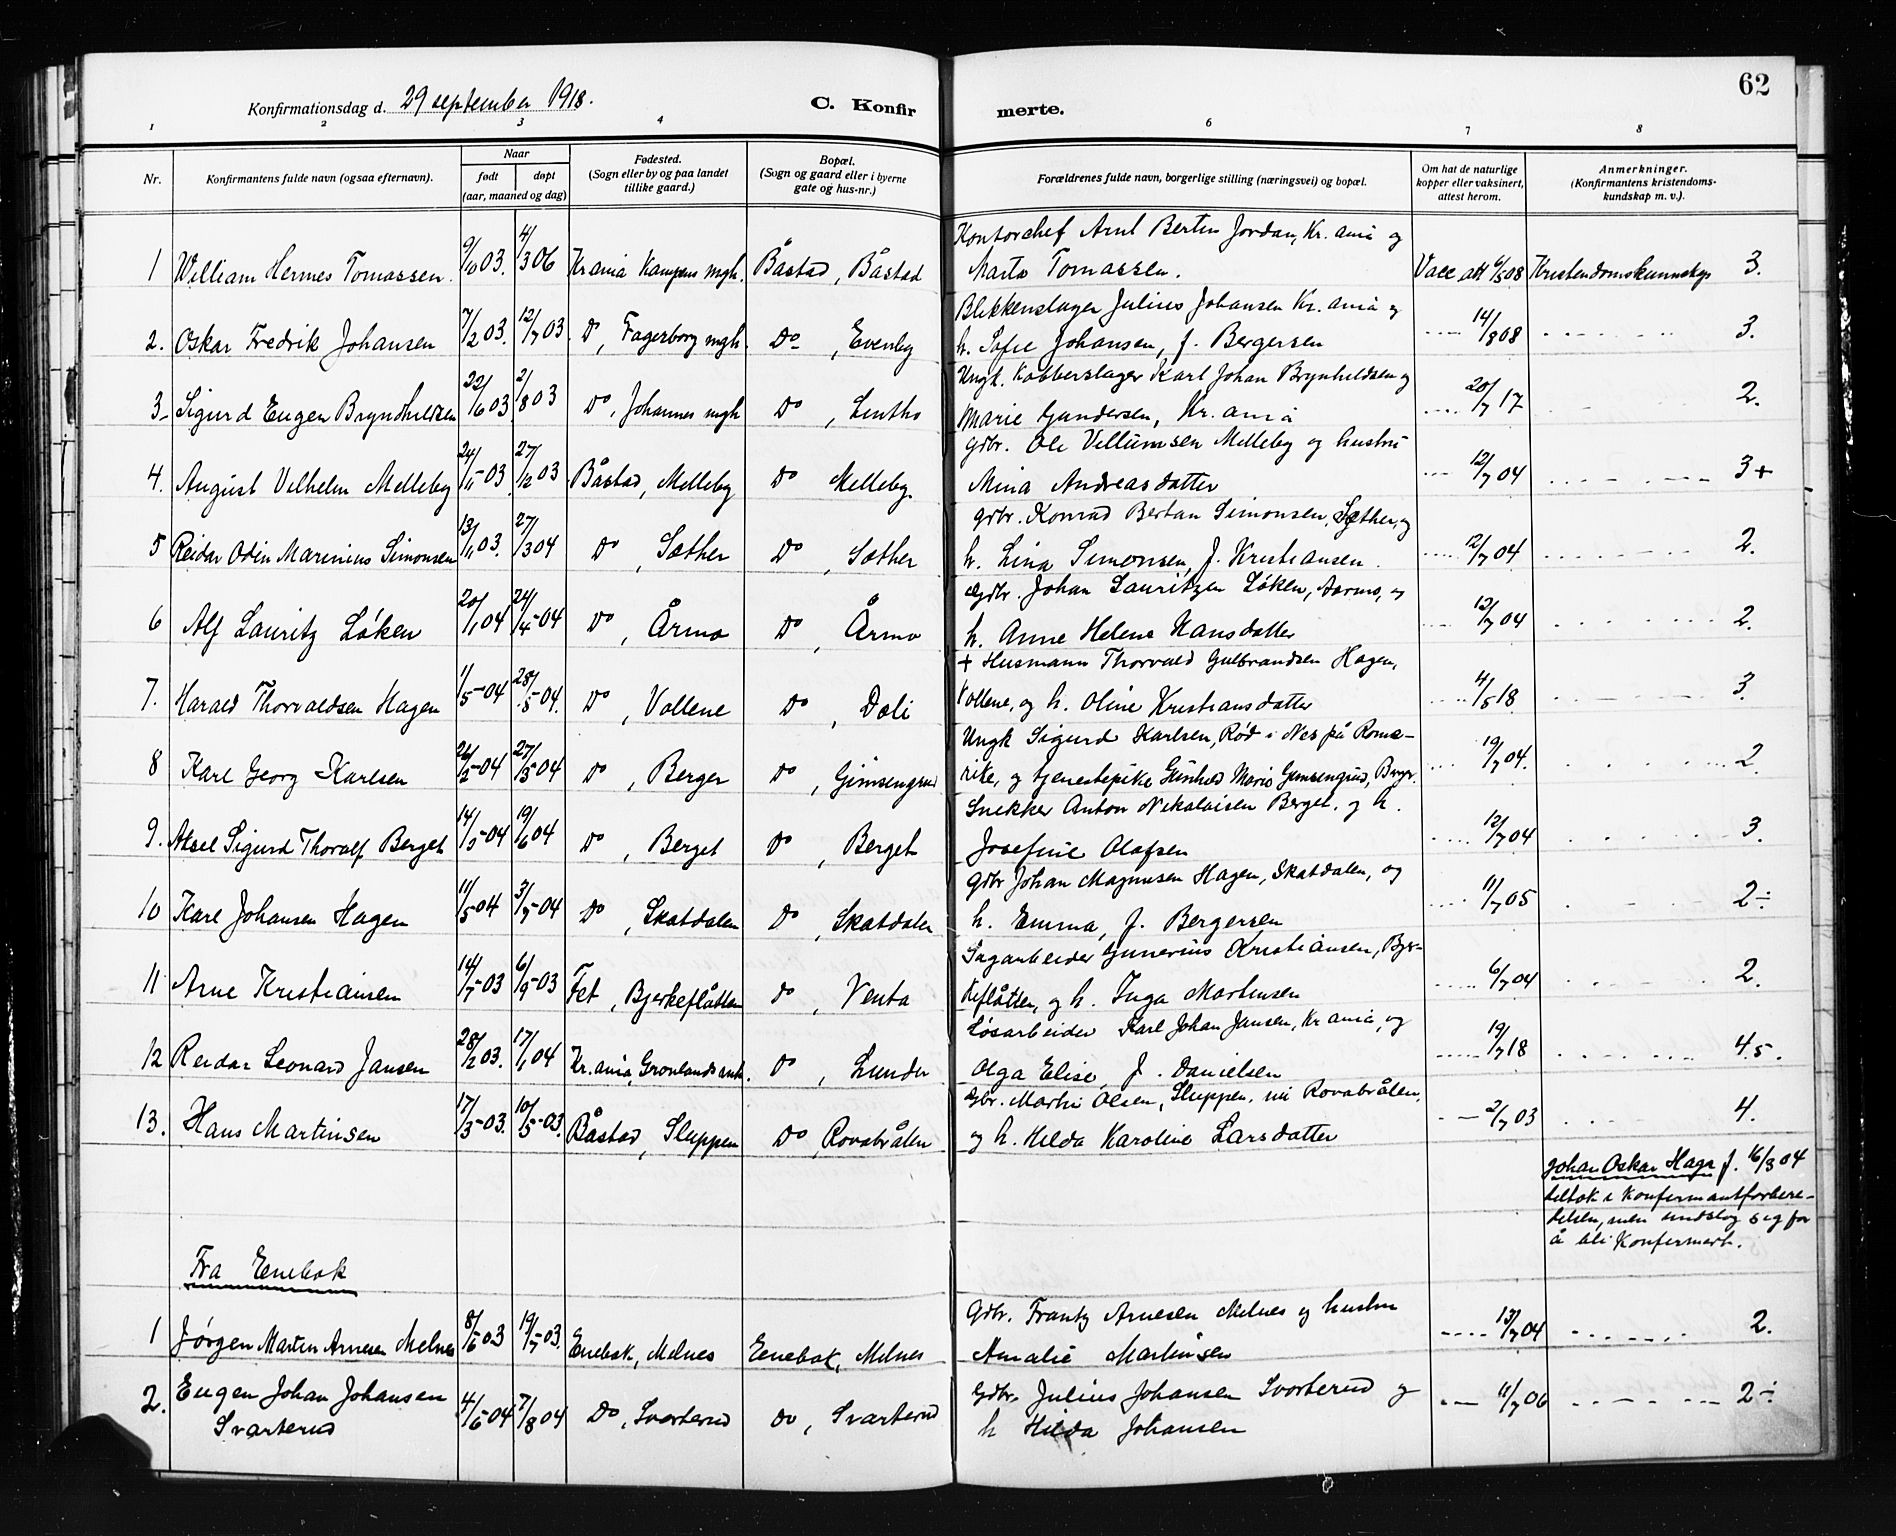 62
Konfirmationsdag d. 29 september 1918. C. Konfir merte.
1 2 3 4 6 7 8
Nr. Konfirmantens fulde navn (ogsaa efternavn). Naar født døpt (aar, maaned og dag) Fødested. (Sogn eller by og paa landet tillike gaard.) Bopæl. (Sogn og gaard eller i byerne gate og hus-nr.) Forældrenes fulde navn, borgerlige stilling (næringsvei) og bopæl. Om hat de naturlige kopper eller vaksinert, attest herom. Anmerkninger. (Konfirmantens kristendoms-kundskap m. v.).
Kontorchef Arnt Bertin Jordan, Kr.ania og
1 William Hermes Tomassen. 9/10 03. 4/3 06 Krania Kampens mgh. Båstad, Båstad Marta Tomassen. Vacc att 6/5 08 Kristendomskunnskap 3.
Blikkenslager Julius Johansen Kr.ania og
2. Oskar Fredrik Johansen 7/2 03. 12/7 03. Do, Fagerborg mgh. Do, Evenby h. Sofie Johansen, f. Bergersen 14/8 08 3.
Ungk. Kobberslager Karl Johan Brynhildsen og
3 Sigurd Eugen Bryndhildsen 22/6 03 2/8 03 Do, Johannes mgh Do, Lintho Marie Gundersen, Kr.ania 20/7 17 2.
Gdbr. Ole Villumsen Melleby og hustru
4. August Vilhelm Melleby 24/11 03 27/12 03 Båstad, Melleby Do Melleby. Mina Andreasdatter 12/7 04 3+
Gdbr. Konrad Bertan Simonsen, Sæther, og
5 Reidar Odin Marinius Simonsen 13/11 03. 27/3 04 Do, Sæther Do, Sæther h. Lina Simonsen, f. Kristiansen. 12/7 04 2.
Gdbr. Johan Lauritzen Løken, Aarmo, og
6 Alf Lauritz Løken 20/1 04 24/4 04 Do, Årmo Do, Årmo h. Anne Helene Hansdatter 12/7 04 2.
+ Husmann Thorvald Gulbrandsen Hagen,
7. Harald Thorvaldsen Hagen 1/5 04 28/5 04. Do, Vollene Do, Dali Vollene, og h. Oline Kristiansdatter 4/5 18 3.
Ungk Sigurd Karlsen, Rød i Nes på Rome-
8 Karl Georg Karlsen 26/2 04 27/3 04 Do, Berger Do, Gimsengrud rike, og tjenestepike Gunhild Marie Gimsengrud, 19/7 04. 2.
Snekker Anton Nikolaisen Berget. og h.
9. Aksel Sigurd Thoralf Berget 14/5 04 19/6 04 Do, Berget Do, Berget Josefine Olafsen 12/7 04 3.
Gdbr Johan Magnusen Hagen, Skatdalen, og
10 Karl Johansen Hagen 11/5 04 3/7 04 Do, Skatdalen Do, Skatdalen h. Emma, f. Bergersen 11/7 05 2÷
Sagarbeider Gunerius Kristiansen, Bjer-
11 Arne Kristiansen 14/7 03 6/9 03 Fet, Bjerkeflåtten Do, Venta keflåtten, og h. Inga Martinsen 6/7 04 2.
Løsarbeider Karl Johan Jansen, Kr ania, og
12 Reidar Leonard Jansen 28/12 03. 17/1 04 Kr.ania, Grønlands mh. Do, Lunder Olga Elise, f. Danielsen 19/7 18 4.5.
Gbr. Martin Olsen, Sluppen, nu Rovabråten,
13. Hans Martinsen 17/3 03. 10/5 03. Båstad, Sluppen Do, Rovabråten og h. Hilda Karoline Larsdatter 2/7 03 4.
Johan Oskar Haga f. 16/3 04
deltok i Konfirmantforbere-
delsen, men undslog sig for
å bli Konfirmert.
Fra Enebak
Gdbr. Frantz Arnesen Melnes og hustru
1 Jørgen Martin Arnesen Melnes 8/6 03 19/7 03. Enebak, Melnes Enebak, Melnes Amalie Martinsen 13/7 04 2.
2. Eugen Johan Johansen 4/6 04 7/8 04 Do, Svarterud Do, Svarterud Gdbr. Julius Johansen Svarterud og 11/7 06 2÷
Svarterud h Hilda Johansen